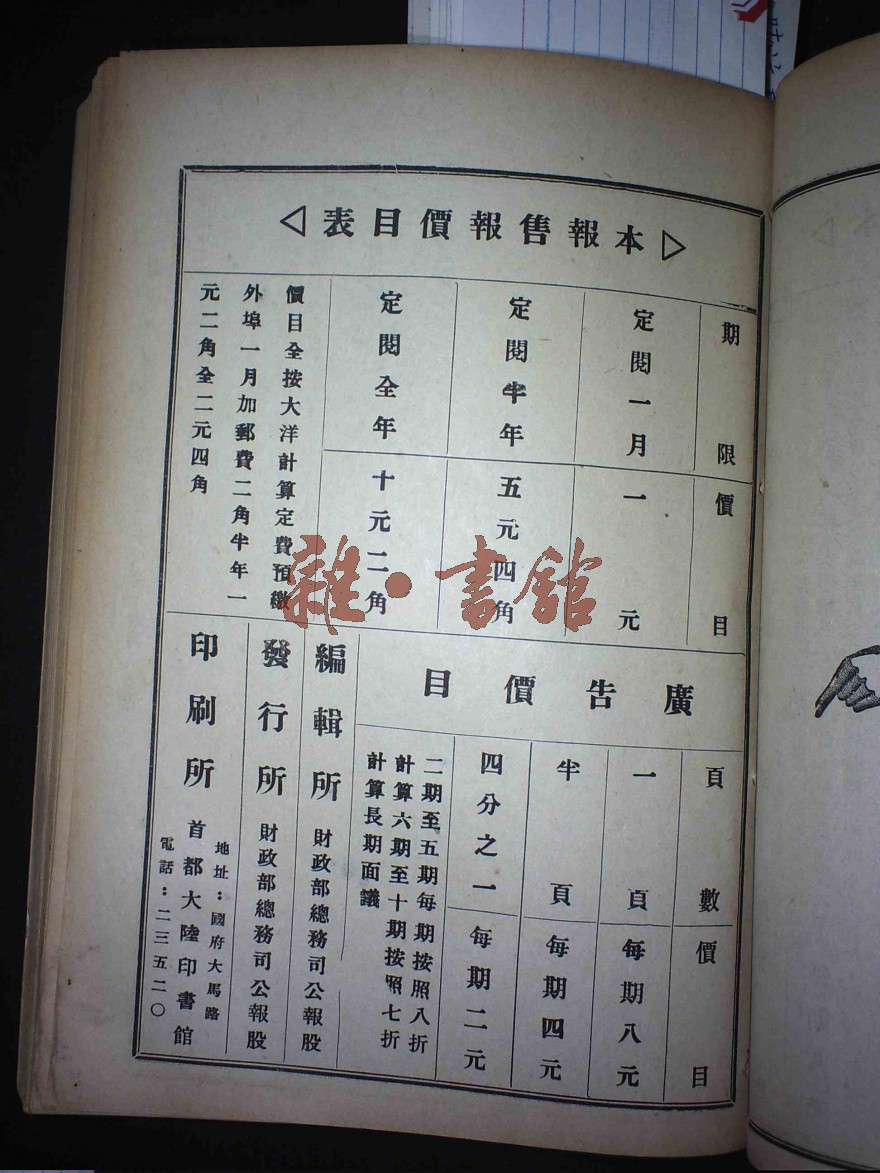 本報售報價目表
期限
價目
定閱一月
一元
定閱半年
五元四角
定閱全年
十元二角
價目全按大洋計算定費預繳
外埠一月加郵費二角半年一
元二角全二元四角
廣告價目
頁數
價目
一頁
每期八元
半頁
每期四元
四分之一
每期二元
二期至五期每期按照八折
計算六期至十期按照七折
計算長期面議
編輯所 財政部總務司公報股
發行所 財政部總務司公報股
印刷所 首都大陸印書館
地址：國府大馬路
電話：二三五二〇
雜·書館